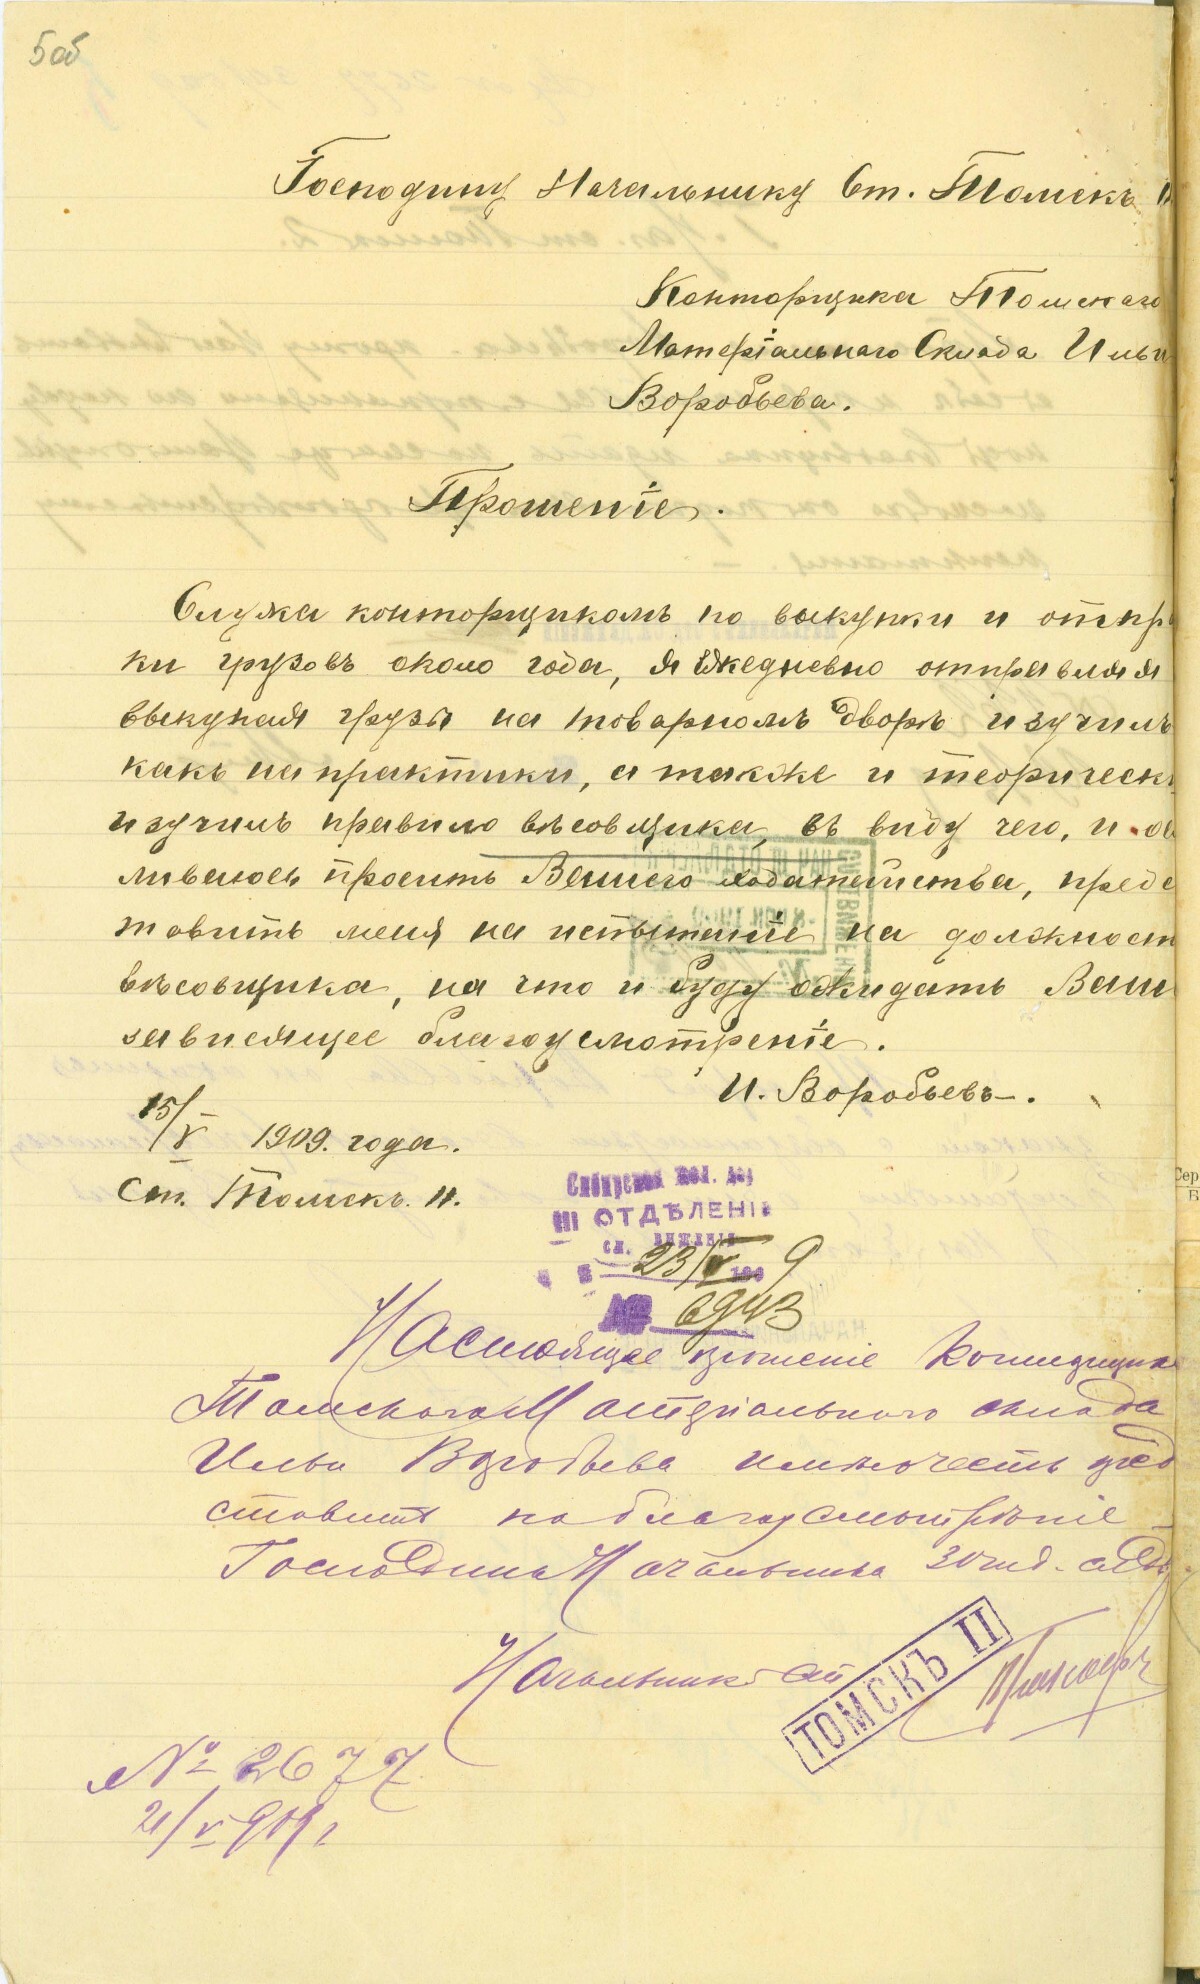 5об
Господину Начальнику Ст. Томскъ II
Конторщика Томскаго
Матеріальнаго Склада Ильи
Воробьева.
Прошеніе.
Служа конторщикомъ по выкупки и отпр
ки грузовъ около года, я ежедневно отправляя
выкупая грузы на товарномъ дворѣ изучилъ
какъ на практики, а также и теорическ
изучилъ правило вѣсовщика, въ виду чего, и ос
ливаюсь просить Вашего ходатайства, предс
товить меня на испытаніе на должност
вѣсовщика, на что и буду ожидать Ваш
зависящее благоусмотреніе.
И. Воробьевъ.
15/V 1909. года.
Ст. Томскъ. II.
Сибирская жел. дор
III ОТДѢЛЕНІ
сл. вижені
23/V 1909
№ 6943
Настоящее прошеніе Конторщика
Томского Матеріального склада
Ильи Воробьева имѣю честь пред
ставить на благоусмотрѣніе
Господина Начальника 3 отд. сл. Дв
Начальникъ ст
ТОМСКЪ II
№ 2677
21/V 909 г
Сер
Б